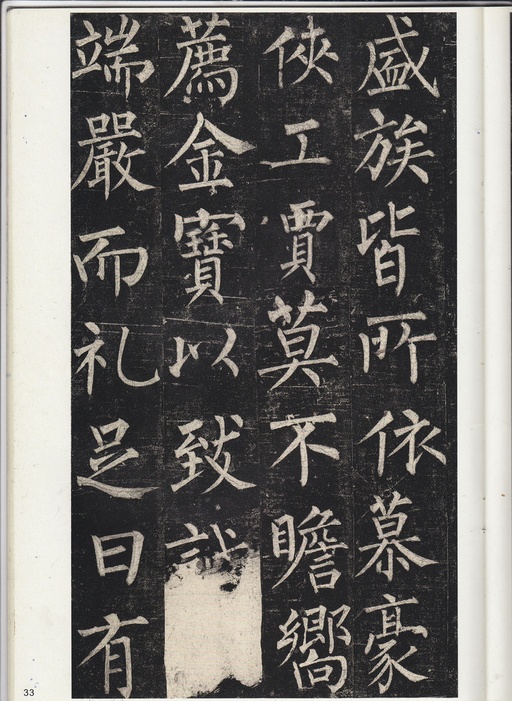 盛族皆所依慕豪
俠工賈莫不瞻嚮
薦金寶以致
端嚴而礼足日有
33